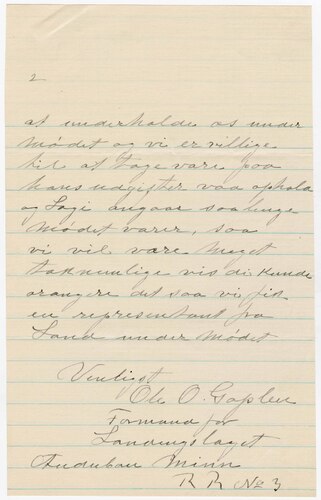 2
at underholde os under
mødet og vi er villige
til at tage vare paa
hans udgifter vaa ophold
og Logi angaar saalenge
mødet varer, saa
vi vil være meget
taknemlige vis di kunde
arangere det saa vi fik
en representant fra
Land under mødet
Venligst
Ole O. Goplen
Formand for
Landingslaget
Audubon Minn
R R No 3